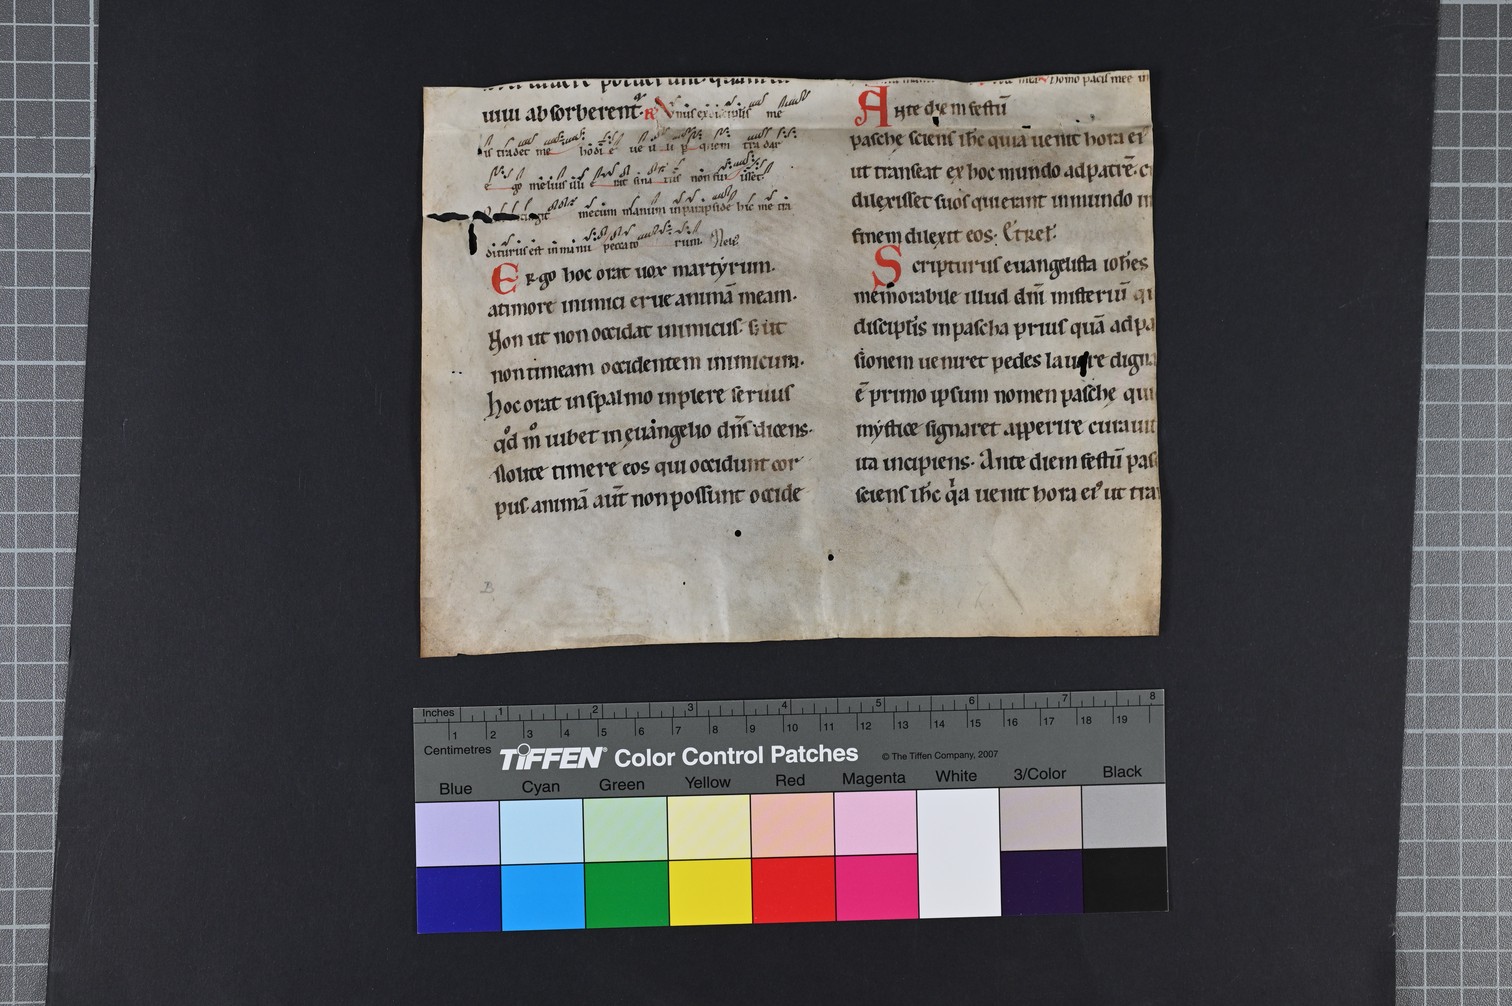 uiui absorberent. R Vnus ex discipulis me
is tradet me hodie ue illi p quem tradar
ego melius illi erat si natus non fuisset
mecum manum in parapside hic me tra
diturus est in manu peccatorum.
Ergo hoc orat uox martyrum.
a timore inimici erue animā meam.
Non ut non occidat inimicus. s; ut
non timeam occidentem inimicum.
hoc orat in spalmo inplere seruus
qd m iubet in euangelio dns dicens.
Nolite timere eos qui occidunt cor
pus. animā aut non possunt occide
homo pacis mee in
Ante diem festū
pasche sciens ihc quia uenit hora ei
ut transeat ex hoc mundo ad patrē. c
dilexisset suos qui erant in mundo in
finem dilexit eos. Et rel.
Scripturus euangelista iohes
memorabile illud dni misteriū qi
disciplis in pascha prius quā ad pa
sionem ueniret pedes lauare dign
ē primo ipsum nomen pasche qui
mystice signaret apperire curauit
ita incipiens. Ante diem festū pas
sciens ihc qa uenit hora ei' ut tra
B
Inches 1 2 3 4 5 6 7 8
1 2 3 4 5 6 7 8 9 10 11 12 13 14 15 16 17 18 19
Centimetres
TIFFEN® Color Control Patches © The Tiffen Company, 2007
Blue Cyan Green Yellow Red Magenta White 3/Color Black